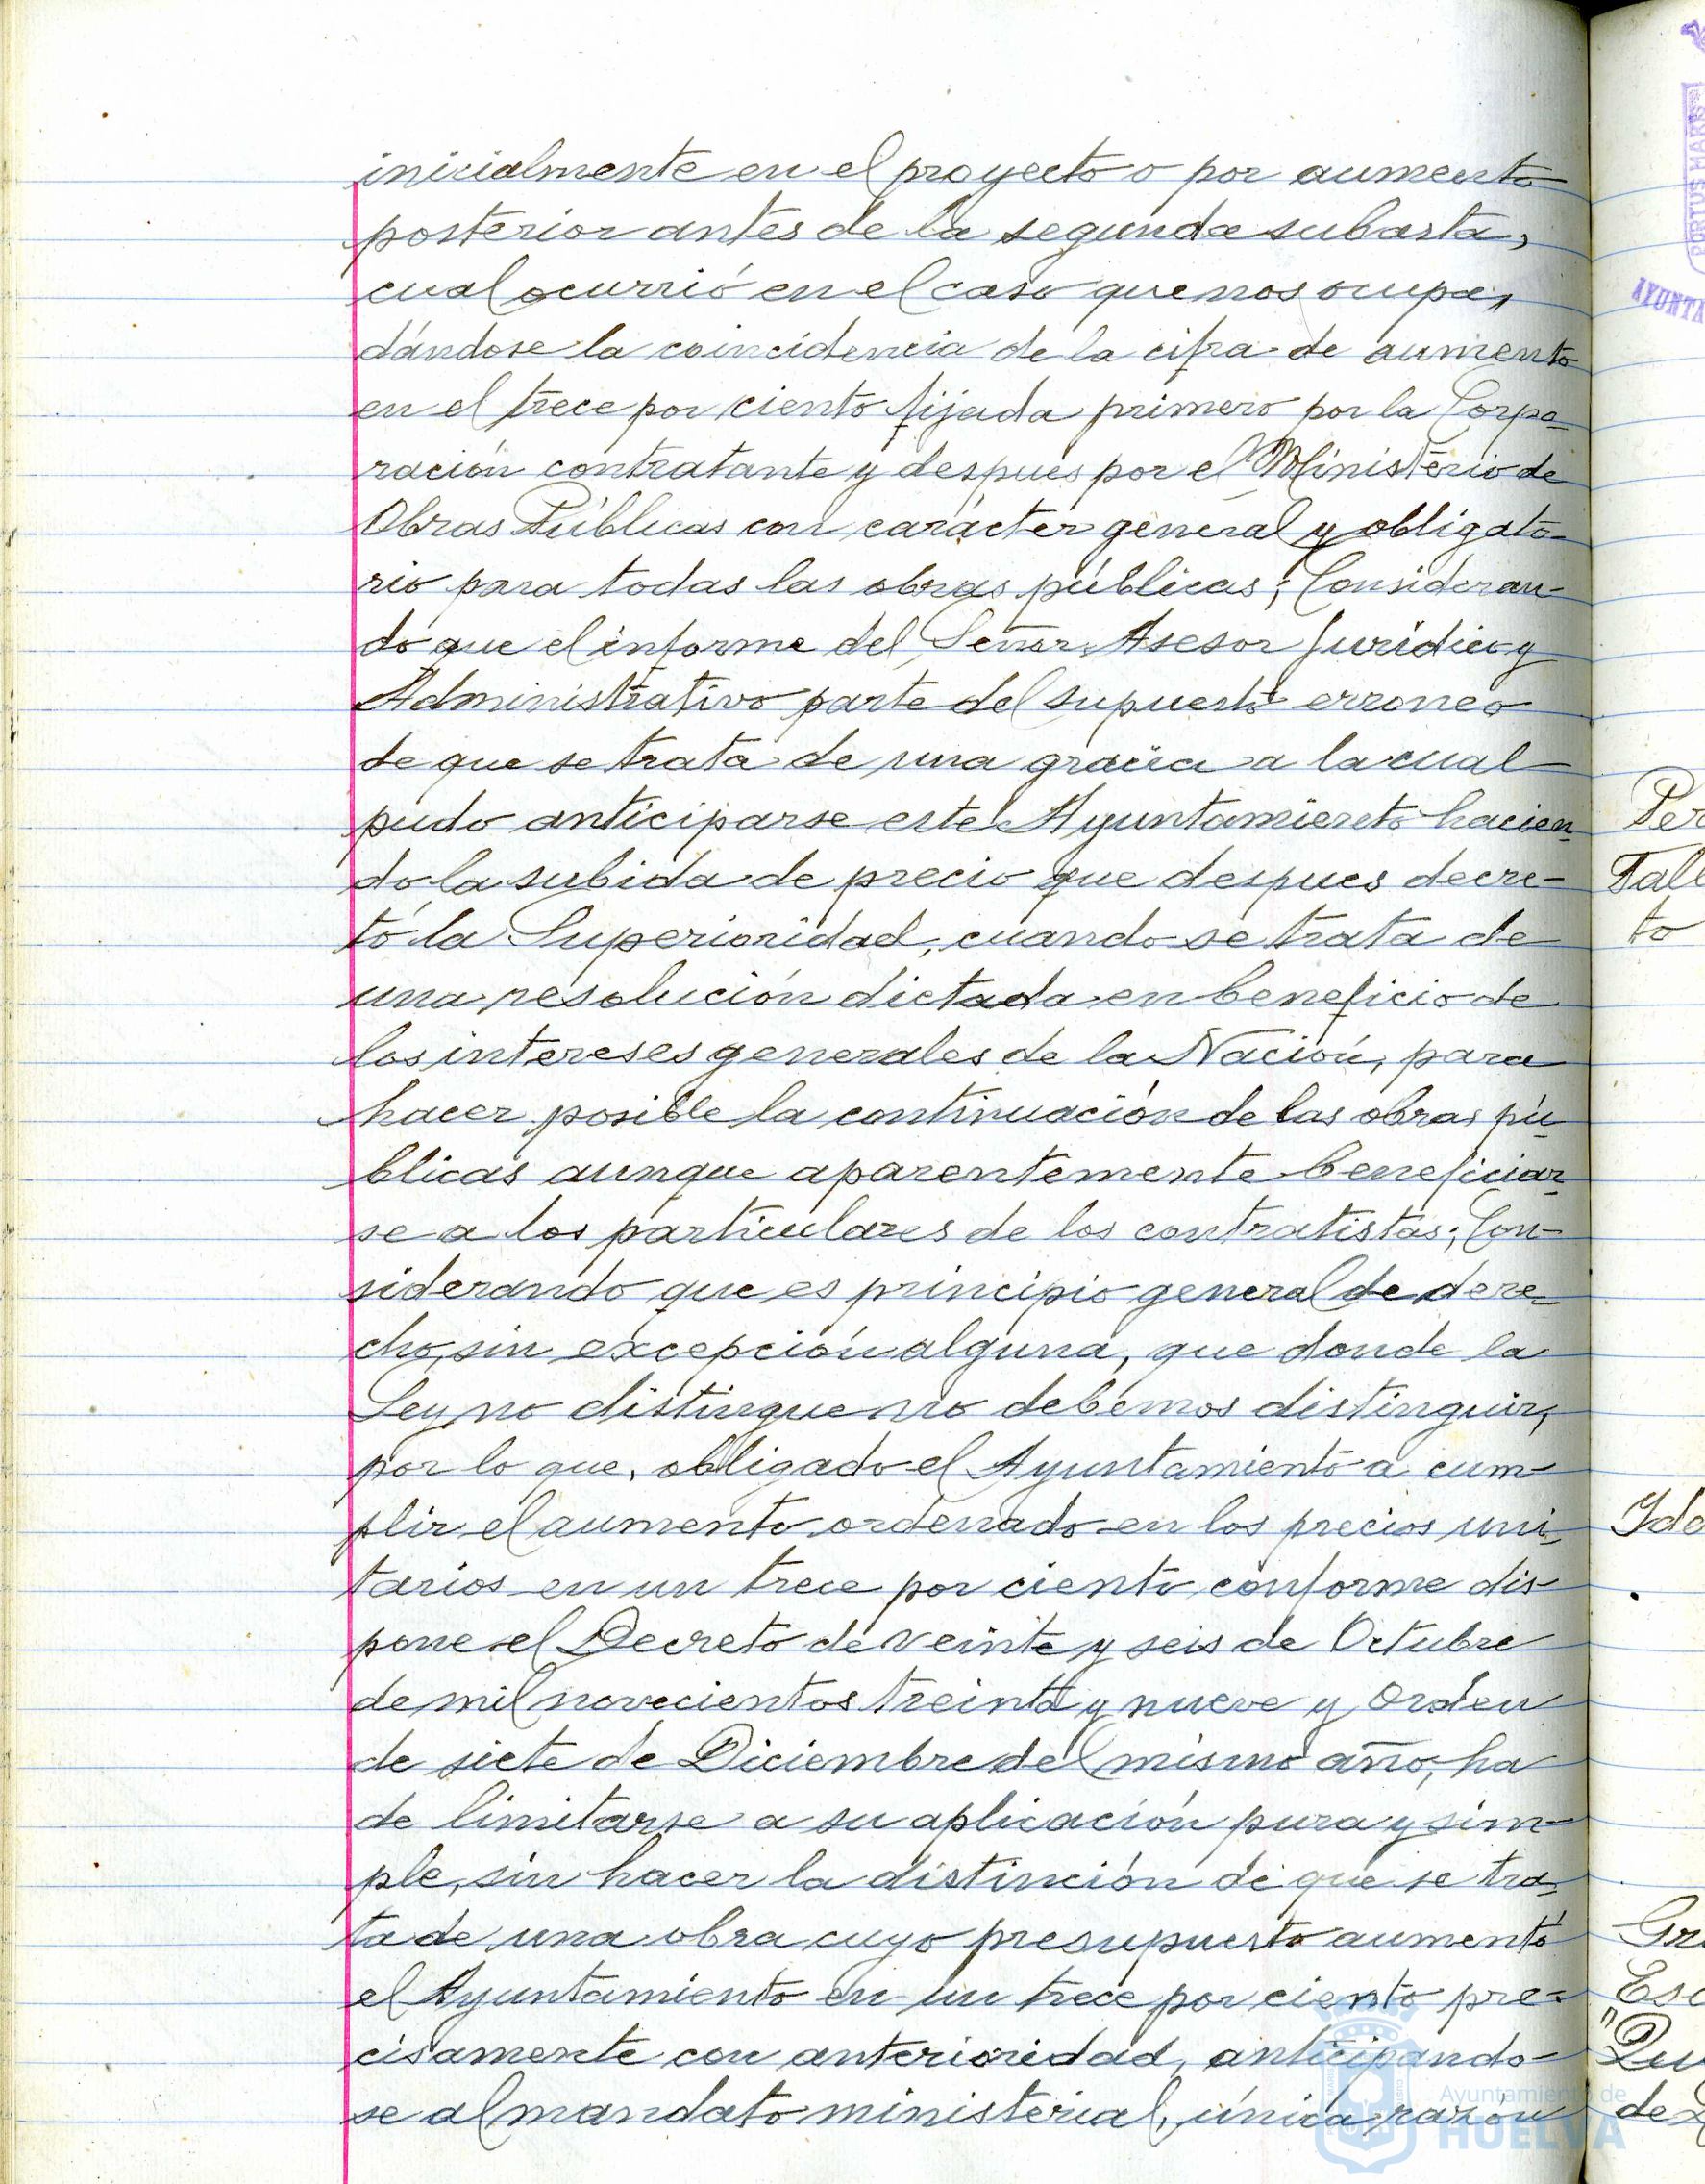 inicialmente en el proyecto o por aumento
posterior antes de la segunda subasta,
cual ocurrió en el caso que nos ocupa,
dándose la coincidencia de la cifra de aumento
en el trece por ciento fijada primero por la Corpo-
ración contratante y despues por el Ministerio de
Obras Públicas con carácter general y obligato-
rio para todas las obras públicas; Consideran-
do que el informe del Señor Asesor Jurídico y
Administrativo parte del supuesto erroneo
de que se trata de una gracia a la cual
pudo anticiparse este Ayuntamiento hacien-
do la subida de precio que despues decre-
tó la Superioridad, cuando se trata de
una resolución dictada en beneficio de
los intereses generales de la Nación, para
hacer posible la continuación de las obras pú-
blicas aunque aparentemente beneficiar-
se a los particulares de los contratistas; Con-
siderando que es principio general de dere-
cho, sin excepción alguna, que donde la
Ley no distingue no debemos distinguir,
por lo que, obligado el Ayuntamiento a cum-
plir el aumento ordenado en los precios uni-
tarios en un trece por ciento conforme dis-
pone el Decreto de veinte y seis de Octubre
de mil novecientos treinta y nueve y Orden
de siete de Diciembre del mismo año, ha
de limitarse a su aplicación pura y sim-
ple, sin hacer la distinción de que se tra-
ta de una obra cuyo presupuesto aumentó
el Ayuntamiento en un trece por ciento pre-
cisamente con anterioridad, anticipando-
se al mandato ministerial, única razón
PORTUS MARIS
AYUNTA
Per
Tall
to
Gr
Esc
de
Ayuntamiento de
HUELVA